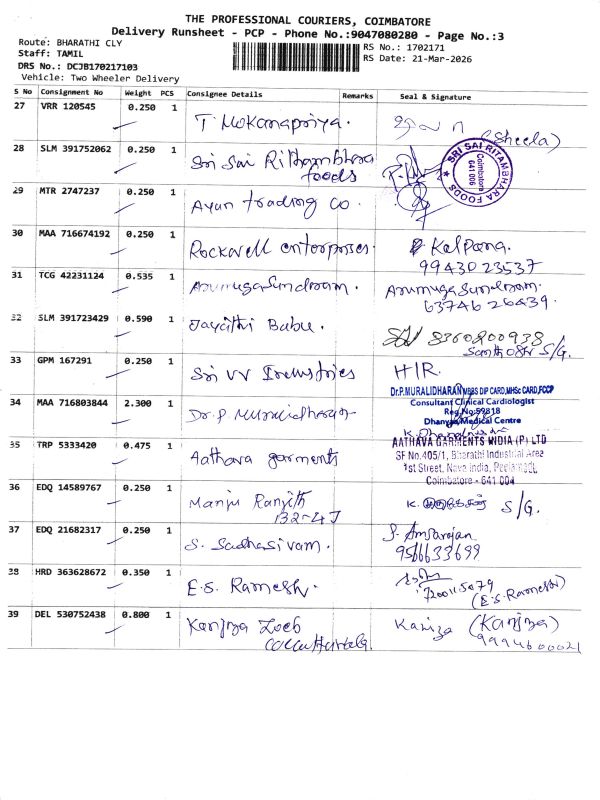 THE PROFESSIONAL COURIERS, COIMBATORE
Delivery Runsheet - PCP - Phone No.:9047080280 - Page No.:3
Route: BHARATHI CLY
RS No.: 1702171
Staff: TAMIL
RS Date: 21-Mar-2026
DRS No.: DCJB170217103
Vehicle: Two Wheeler Delivery
S No Consignment No Weight PCS Consignee Details Remarks Seal & Signature
27 VRR 120545 0.250 1 T. Mokanapriya. (Sheela)
28 SLM 391752062 0.250 1 Sri Sai Rithambhra
foods
SRI SAI RITAMBHARA FOODS
Coimbatore
641 006
29 MTR 2747237 0.250 1 Ayan trading co.
30 MAA 716674192 0.250 1 Rockwell enterprises. Kalpana.
9943023537
31 TCG 42231124 0.535 1 Arumugasundram. Arumugasundram.
63746 26439.
32 SLM 391723429 0.590 1 Jayathi Babu. 8360800938
Santhosh S/G.
33 GPM 167291 0.250 1 Sri VV Industries H/R.
34 MAA 716803844 2.300 1 Dr. P Muralidharan
Dr.P.MURALIDHARAN MBBS DIP CARD,MHSc CARD,FCCP
Consultant Clinical Cardiologist
Reg.No:59818
Dhanya Medical Centre
35 TRP 5333420 0.475 1 Aathava garments
AATHAVA GARMENTS INDIA (P) LTD
SF No.405/1, Bharathi Industrial Area
1st Street, Nava India, Peelamedu,
Coimbatore - 641 004
36 EDQ 14589767 0.250 1 Manju Ranjith S/G.
B2-4J
37 EDQ 21682317 0.250 1 S. Sadhasivam. S. Amsarajan
9566633699
38 HRD 363628672 0.350 1 E.S. Ramesh. 7200115079
(E.S. Ramesh)
39 DEL 530752438 0.800 1 Kanjza Zoeb Kaniza (Kanjza)
9994600021